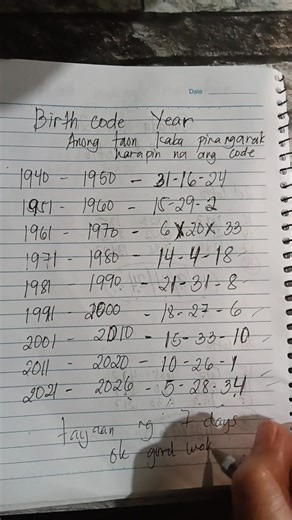 Date
Birth code Year
Anong taon kaba pinanganak
harapin na ang code
1940 - 1950 - 31-16-24
1951 - 1960 - 15-29-2
1961 - 1970 - 6x20x33
1971 - 1980 - 14-4-18
1981 - 1990 - 21-31-8
1991 - 2000 - 18-27-6
2001 - 2010 - 15-33-10
2011 - 2020 - 10-26-1
2021 - 2026 - 5-28-34
tayaan ng 7 days
ok good luck